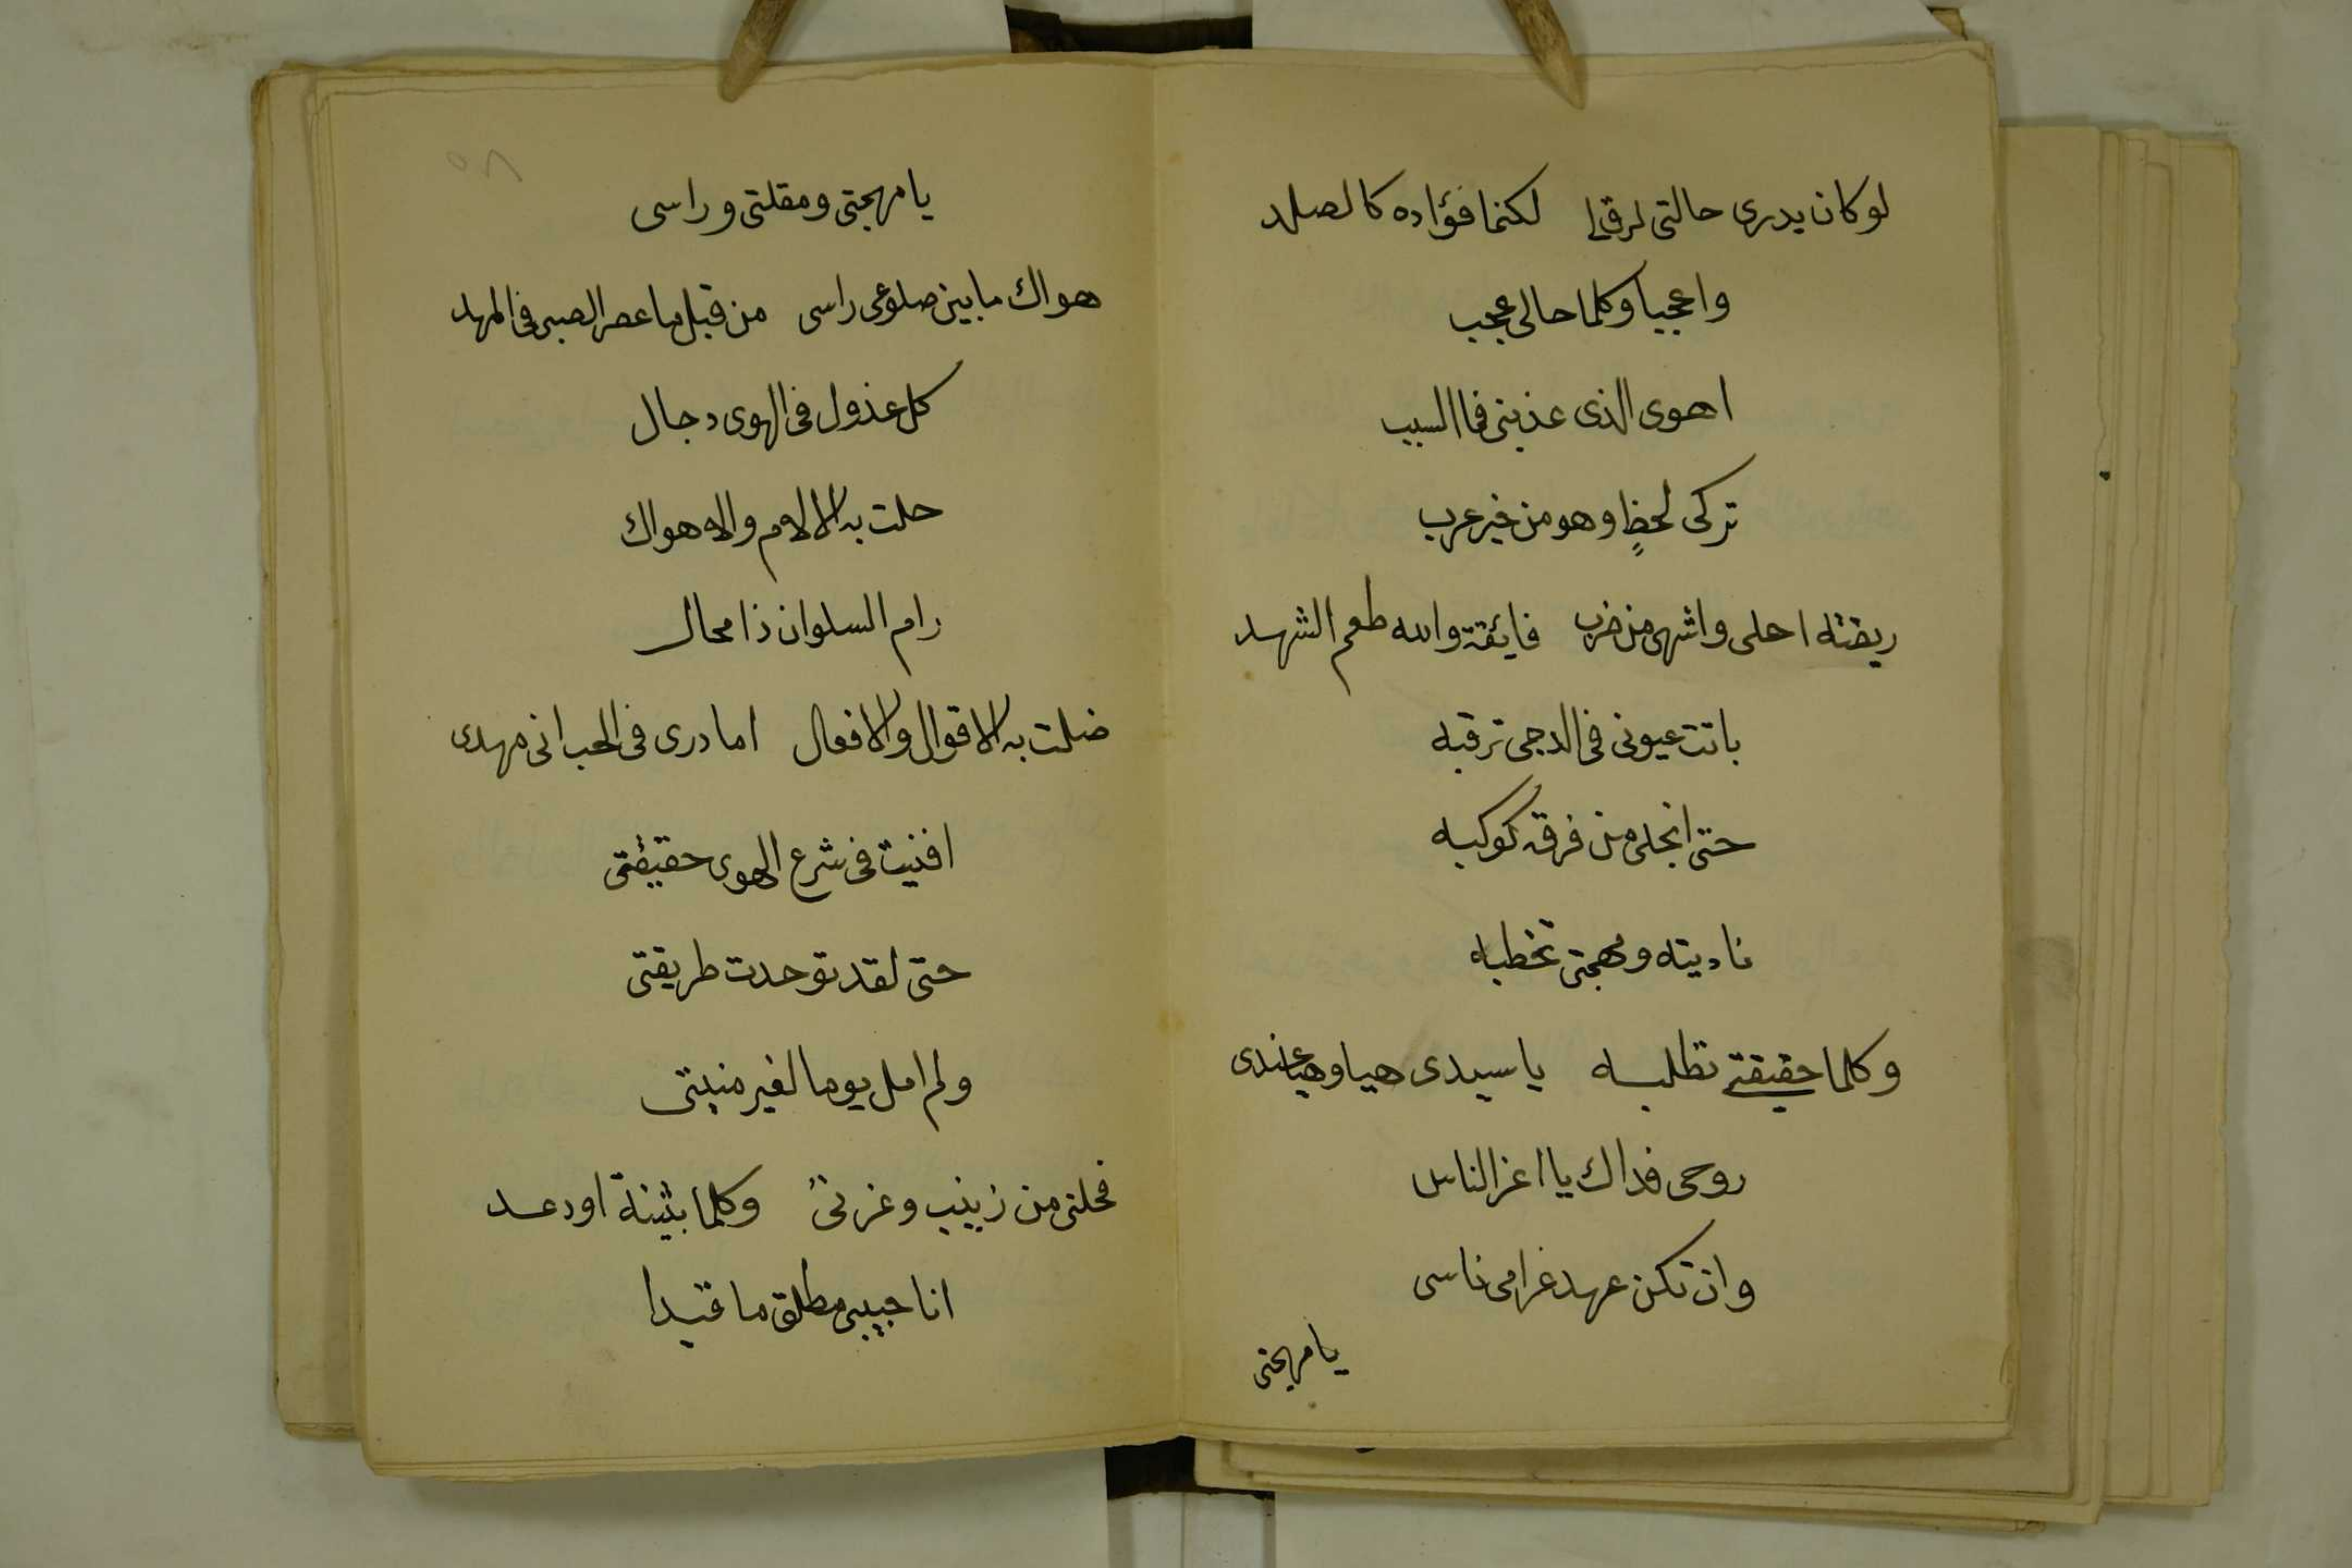 لو كان يدرى حالتى لرق لى لكنما فؤاده كالصلد
واعجبا وكلما حالى عجب
اهوى الذى عذبنى فما السبب
تركى لحظٍ وهو من خير عرب
ريقته احلى واشهى من ضرب فايقة والله طعم الشهد
باتت عيونى فى الدجى ترقبه
حتى انجلى من فرقه كوكبه
ناديته ومهجتى تخطبه
وكلما حقيقتى تطلبه ياسيدى هيا وهيا عندى
روحى فداك يا اعز الناس
وان تكن عهد غرامى ناسى
يا مهجتى
٥٨
يا مهجتى ومقلتى وراسى
هواك ما بين ضلوعى راسى من قبل ما عصر الصبى فى المهد
كل عذول فى الهوى دجال
حلت به الالام والاهوال
رام السلوان ذا محال
ضلت به الاقوال والافعال اما درى فى الحب انى مهدى
افنيت فى شرع الهوى حقيقتى
حتى لقد توحدت طريقتى
ولم امل يوما لغير منيتى
فخلنى من زينب وعزتى وكلما بثينة او دعد
انا حبيبى مطلق ما قيدا